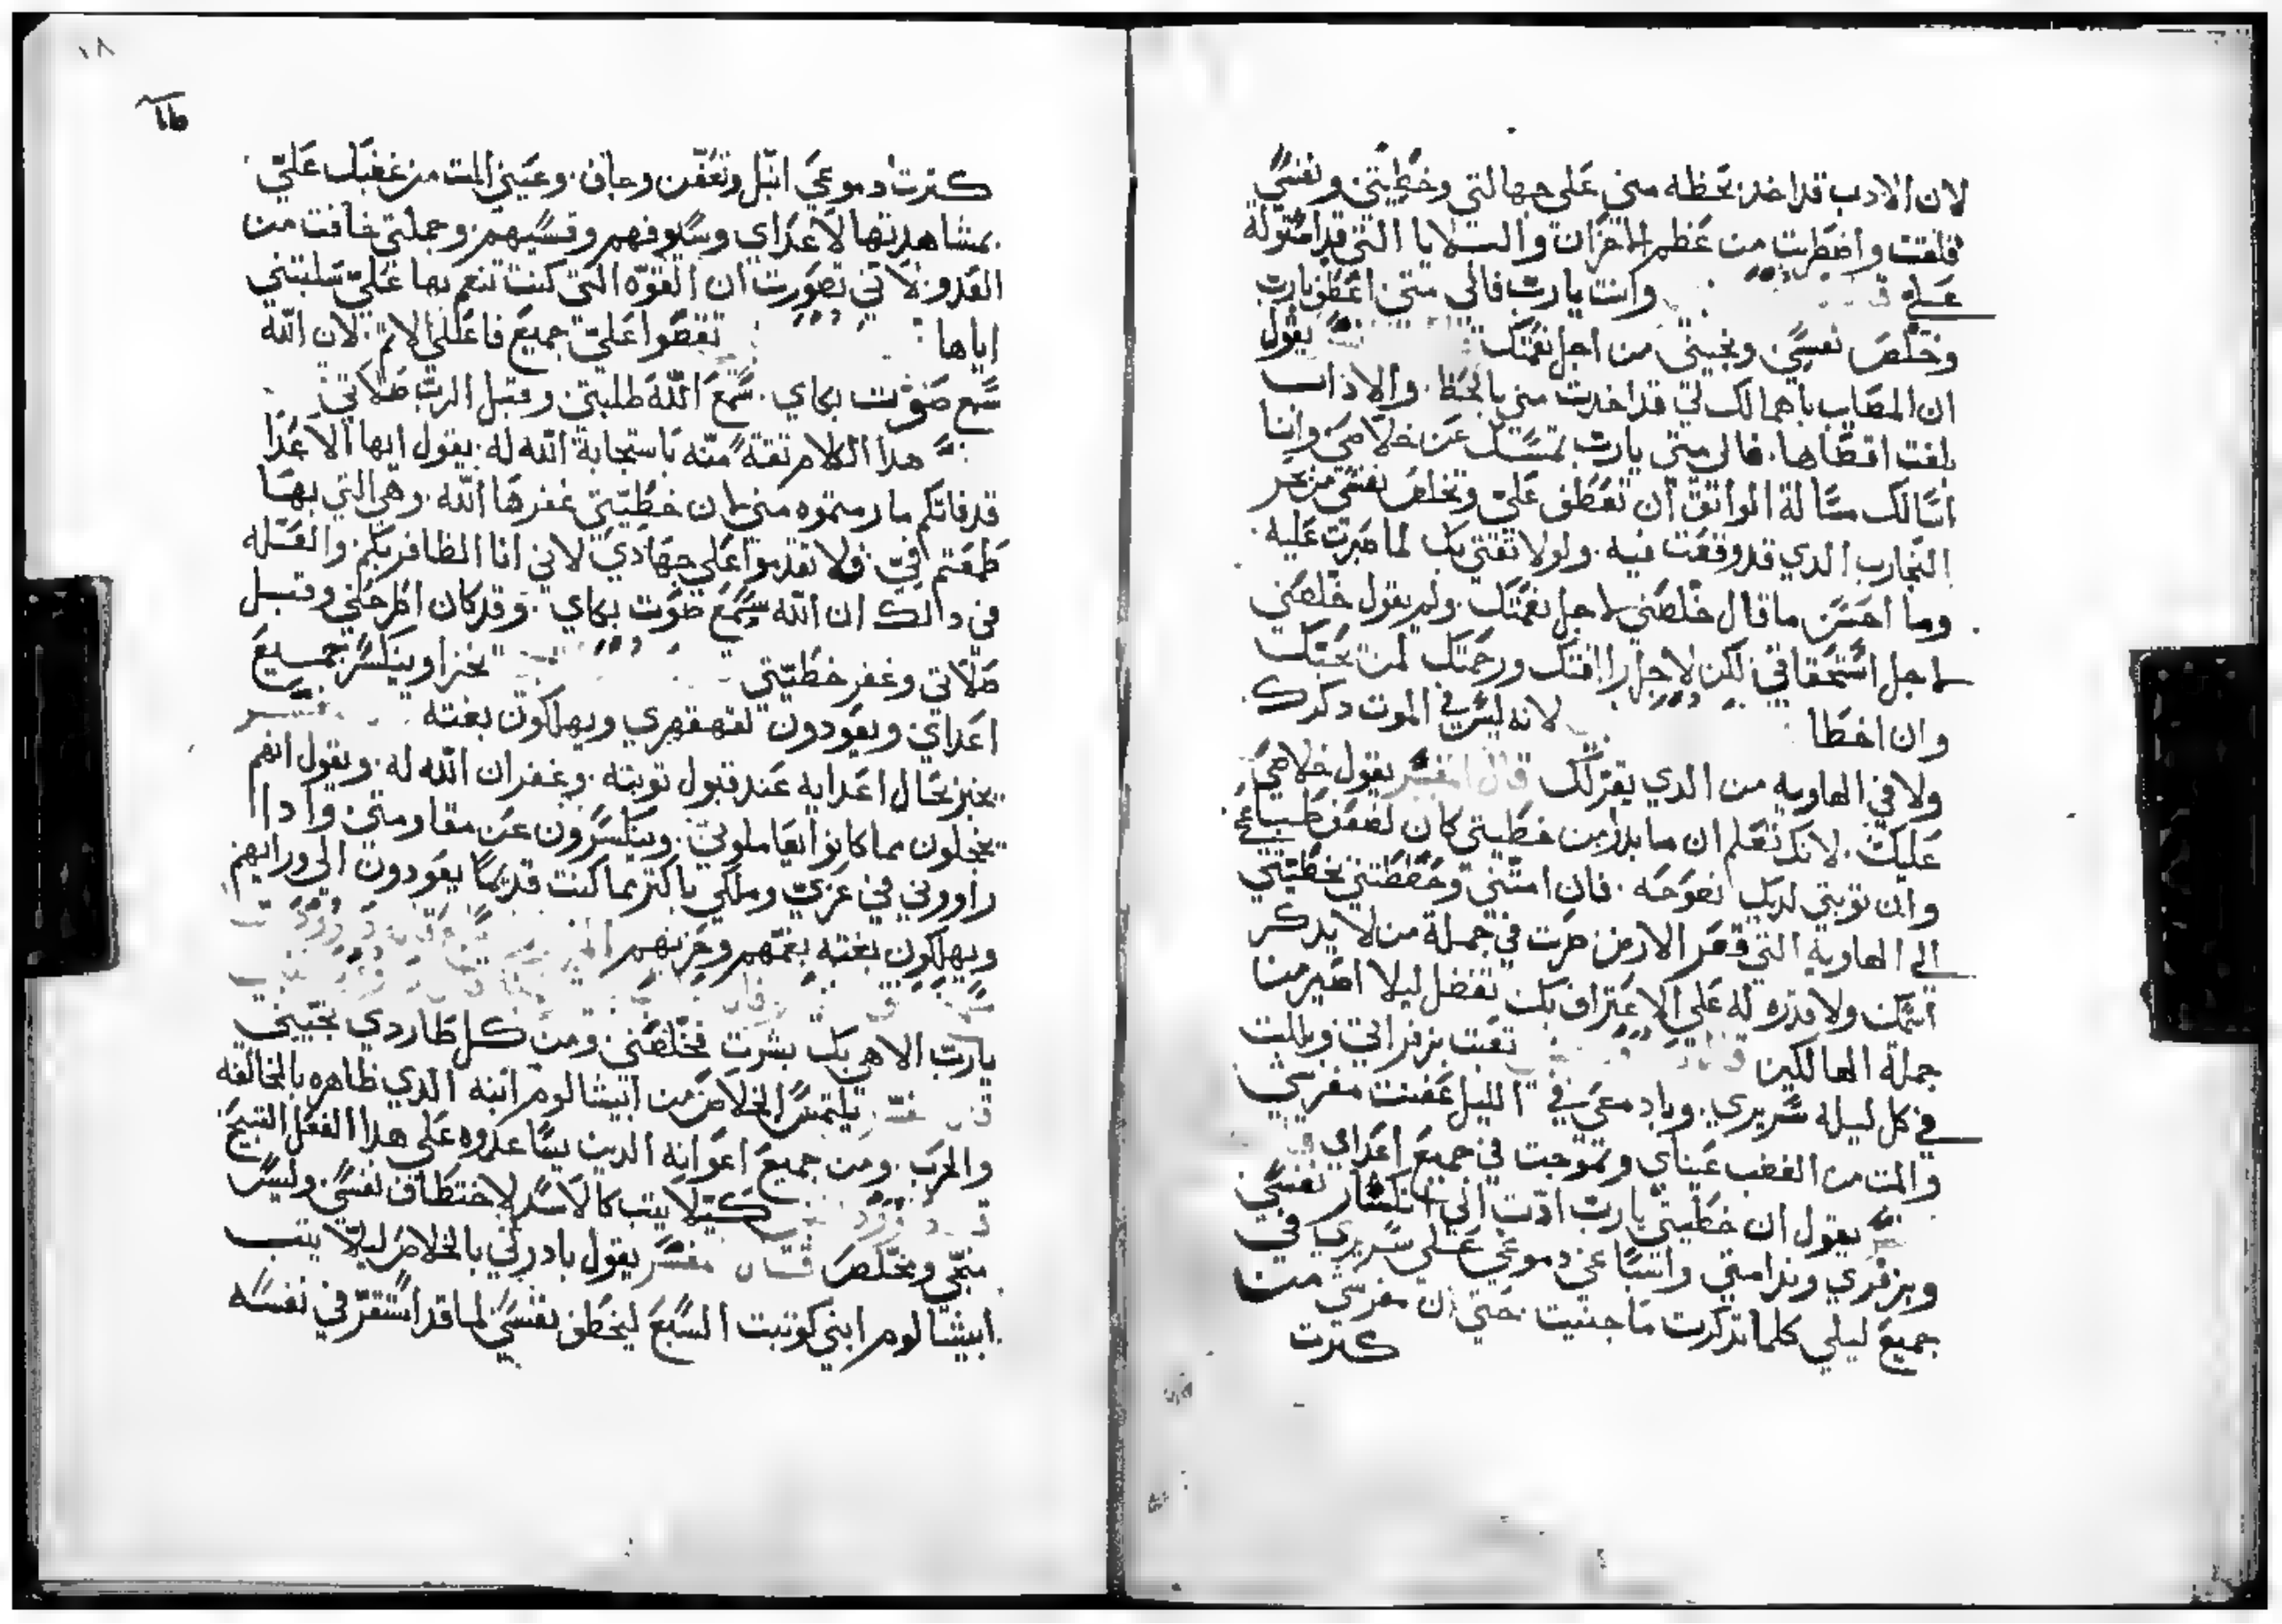 لان الادب قد اخد بحظه مني علي جهالتي وخطيتي ونفسي
قلقت واضطربت من عظم الاحزان والبلايا التي قد استوله
علي وانت يارب فالي متي اعطف يارب
وخلص نفسي ونجيني من اجل نعمتك يقول
ان المصايب باهمالك لي قد اخدت مني بالحظ والاداب
بلغت اقصاها فالي متي يارب تمسك عن خلاصي وانا
اسالك مسالة الواتق ان تعطف علي وتخلص نفسي من بحر
التجارب الدي قد وقعت فيه ولولا تقتي بك لما صبرت عليه
وما احسن ما قال خلصني لاجل نعمتك ولم يقول خلصني
لاجل استحقاقي لكن لاجل راافتك ورحمتك لمن يحبك
وان اخطا لانه ليس في الموت دكرك
ولا في الهاويه من الدي يقر لك قال المفسر يقول خلاصي
عليك لانك تعلم ان ما بدا من خطيتي كان لضعف طباعي
وان توبتي لديك نصوحه فان امتني وحططتني بخطيتي
الي الهاوية التي قعر الارض صرت في جملة من لا يدكر
اسمك ولا قدره له علي الاعتراف بك تفضل ليلا اصير من
جملة الهالكين تعبت بزفراتي وبللت
في كل ليلة سريري وبادمعي في الليل عفنت مفرشي
والمت من الغضب عيناي وتموجت في جميع اعداي
يقول ان خطيتي يارب ادت الي انكسار نفسي
وبزفري وندامتي واسباغي دموعي علي سريري في
جميع ليلي كلما تدكرت ما جنيت حتي ان مفرشي من
كترت
١٨
كترت دموعي ابتل وتعفن وجاف وعيني المت من غضبك علي
بمشاهدتها لاعداي وسيوفهم وقسيهم وجملتي خافت من
العدو لاني تصورت ان القوه التي كنت تنعم بها علي سلبتني
اياها تقصوا علي جميع فاعلي الاتم لان الله
سمع صوت بكاي سمع الله طلبتي وقبل الرب صلاتي
هدا الكلام تقة منه باستجابة الله له يقول ايها الاعدا
قد فاتكم ما رمتموه مني لان خطيتي غفرها الله وهي التي بها
طمعتم في فلا تقدموا علي جهادي لاني انا الظافر بكم والعله
في دالك ان الله سمع صوت بكاي وقد كان اطرحني وقبل
صلاتي وغفر خطيتي يخزا وينكسر جميع
اعداي ويعودون القهقهري ويهلكون بغته
يخبر بحال اعدايه عند قبول توبته وغفران الله له ويقول انهم
يخجلون مما كانوا يعاملوني وينكسرون عن مقاومتي وادا
راووني في عزي وملكي باكتر مما كنت قديما يعودون الي ورايهم
ويهلكون بغته بغمهم وحزنهم
يارب الاهي بك بشرت فخلصني ومن كل طاردي نجيني
يلتمس الخلاص من ابيشالوم ابنه الدي ظاهره بالمخالفه
والحرب ومن جميع اعوانه الدين يساعدوه علي هدا الفعل القبيح
كيلا يتب كالاسد لاختطاف نفسي وليس
منجي ومخلص قال مفسر يقول بادرني بالخلاص ليلا يتب
ابيشالوم ابني كوتبت السبع ليخطف نفسي لما قد استقر في نفسه